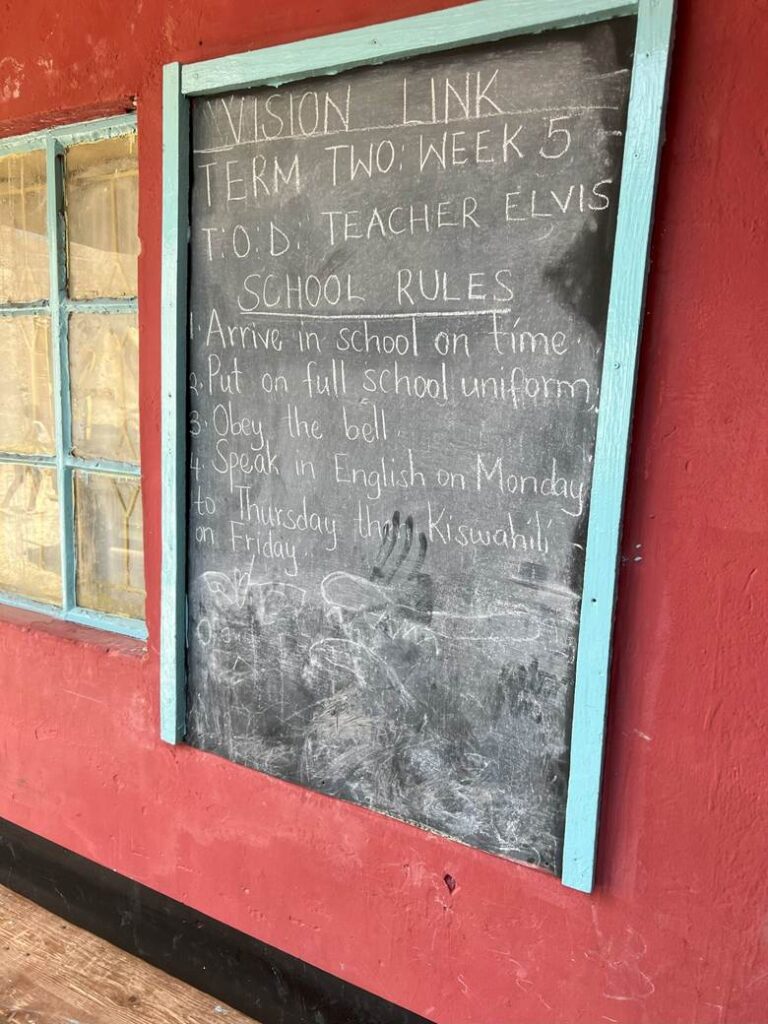 VISION LINK
TERM TWO: WEEK 5
T:O:D: TEACHER ELVIS
SCHOOL RULES
1. Arrive in school on time.
2. Put on full school uniform
3. Obey the bell.
4. Speak in English on Monday
to Thursday then Kiswahili
on Friday.